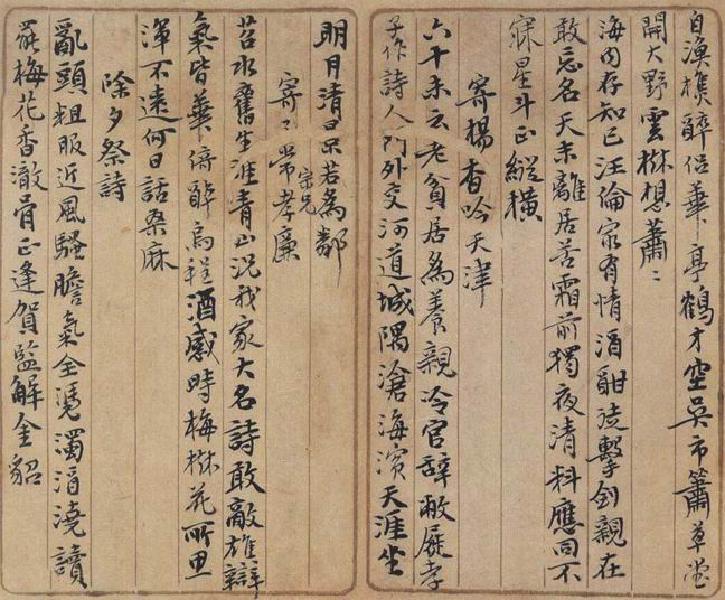 自漁樵醉侣華亭鶴才空吳市簫草堂
開大野雲樹想蕭〻
海内存知己汪倫最有情酒酣造擊劍親在
敢忘名天末離居苦霜前獨夜清料應同不
寐星斗正縱橫
寄楊香吟天津
六十未云老貧居為養親冷官辭敝屣孝
子作詩人門外交河道城隅滄海濱天涯坐
明月清
若為鄰
寄〻常孝廉
宗兄
苕水舊生涯青山況我家大名詩敢敵雄辯
氣皆華倚醉烏程酒感時梅樹花所思
渾不遠何日話桑麻
除夕祭詩
亂頭粗服近風騷膽氣全憑濁酒澆讀
罷梅花香澈骨正逢賀監解金貂